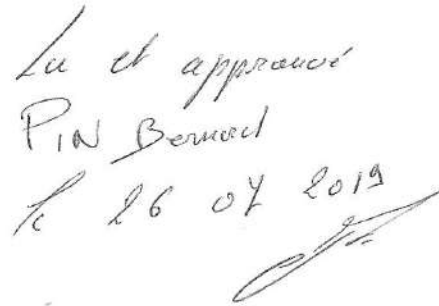 Lu et approuvé
PIN Bernard
le 26 07 2019